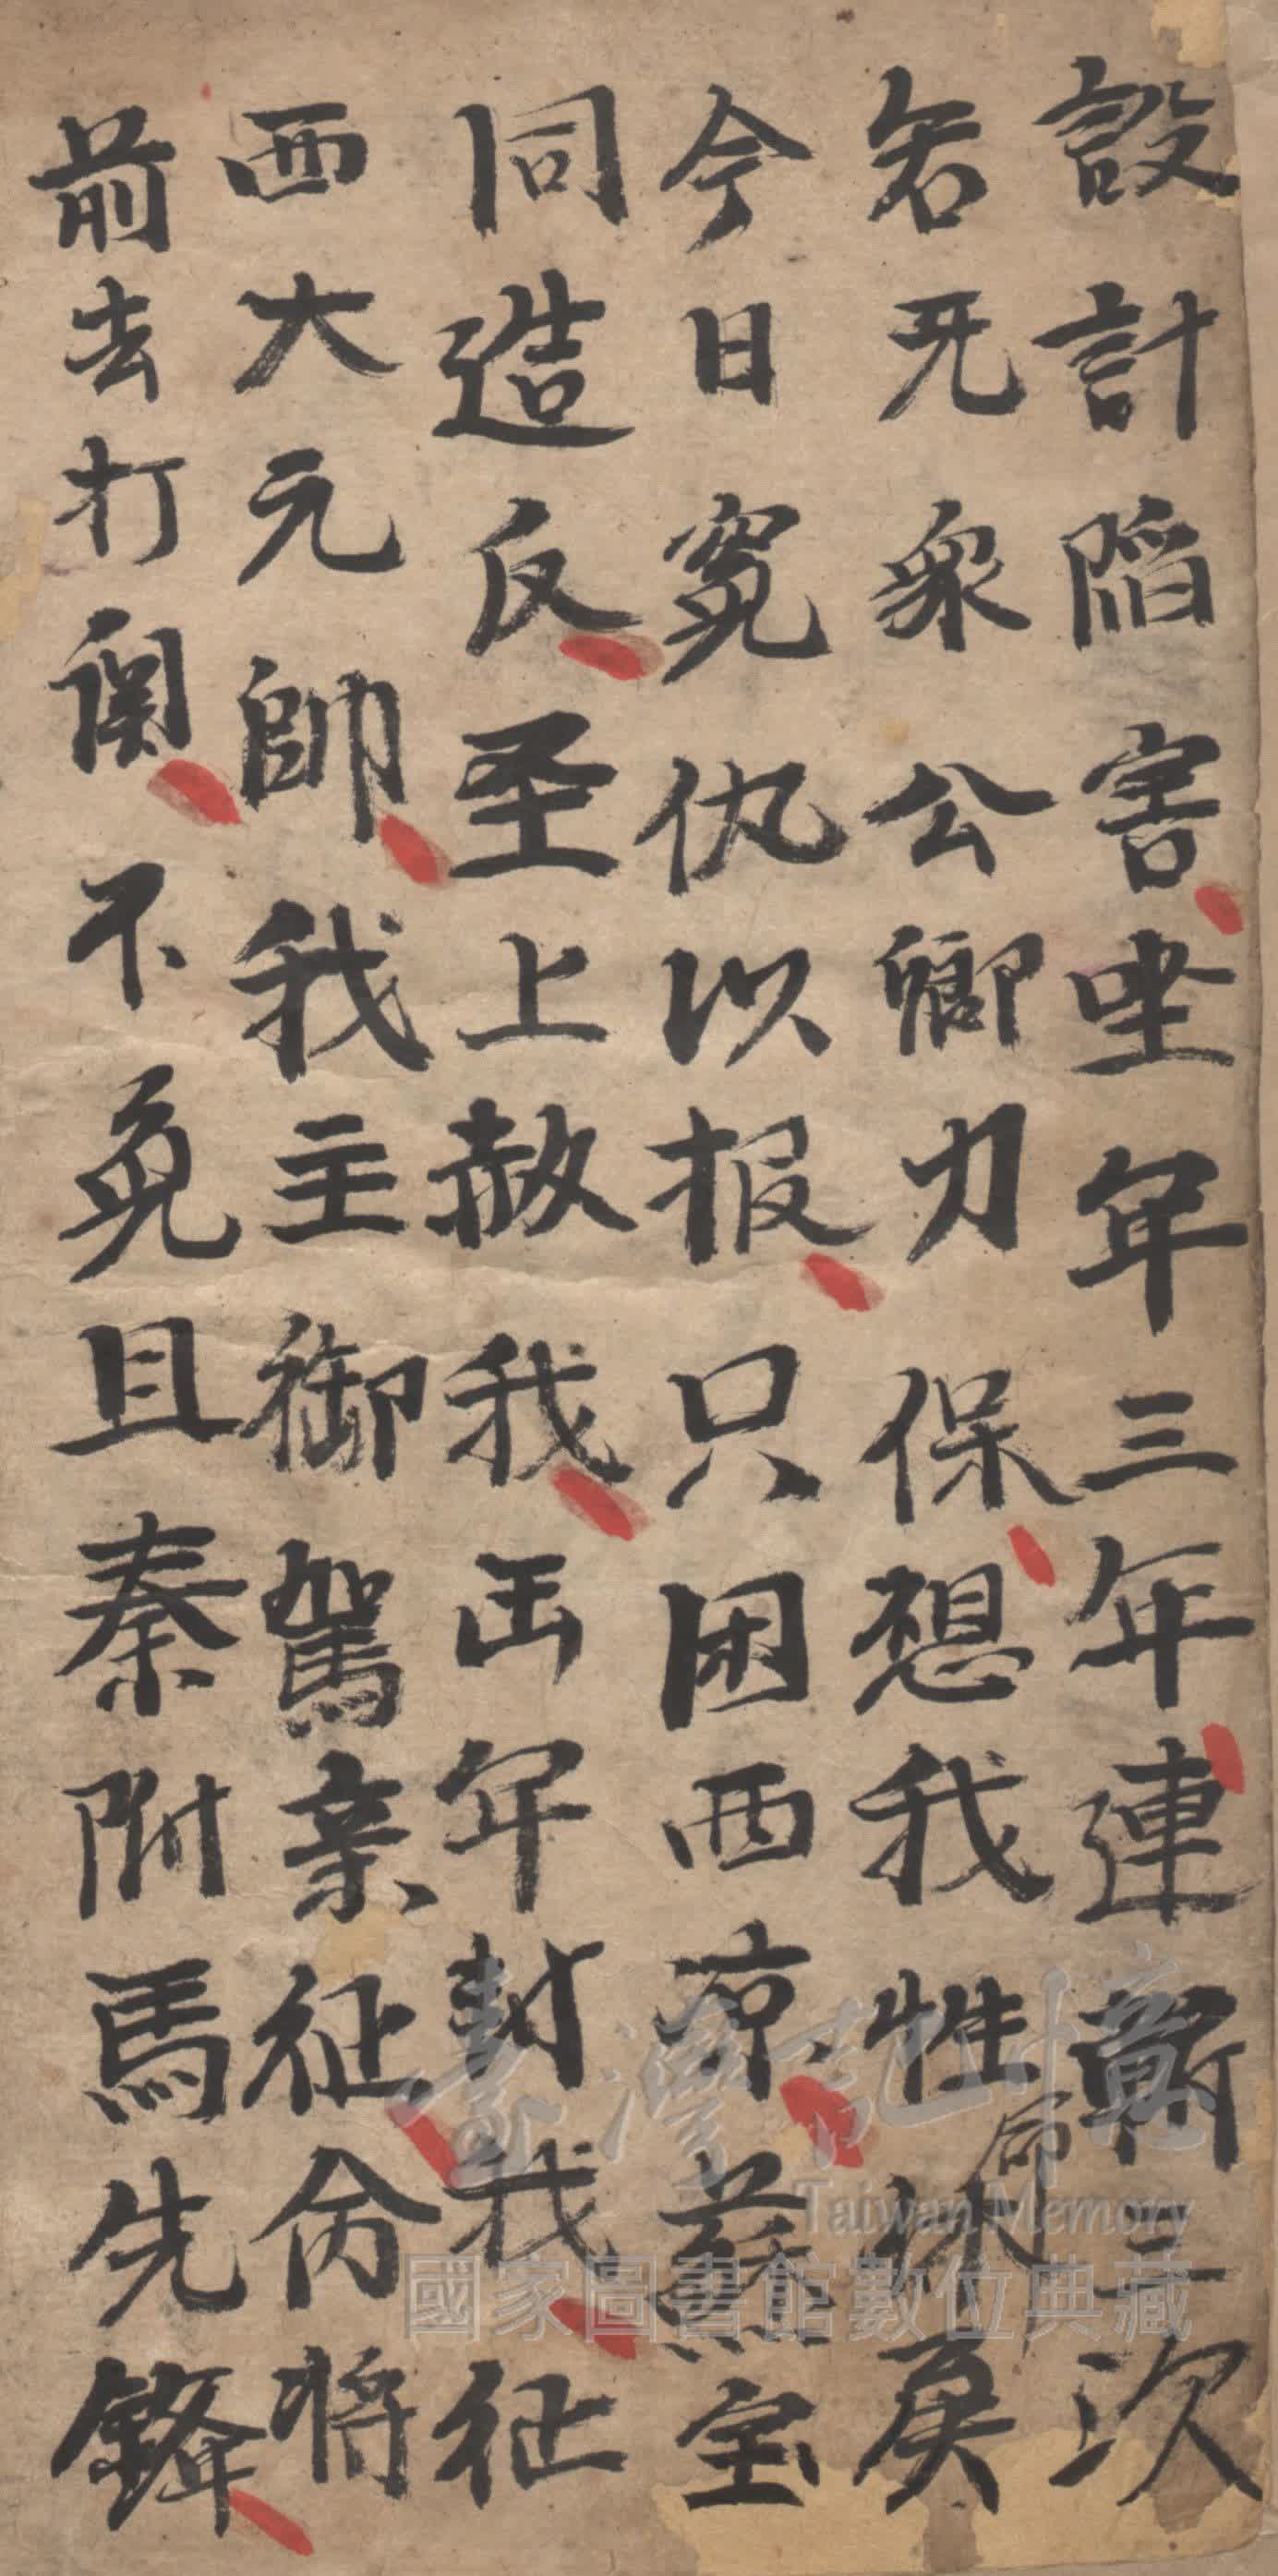 設計陷害坐年三年連斬三次
若旡衆公卿力保想我牲命休矣
今日寃仇以报只困西凉蘇宝
同造反圣上赦我缶年封我征
西大元帥我主御駕亲征命将
前去打関不免且秦附馬先鋒
臺灣記憶
Taiwan Memory
國家圖書館數位典藏